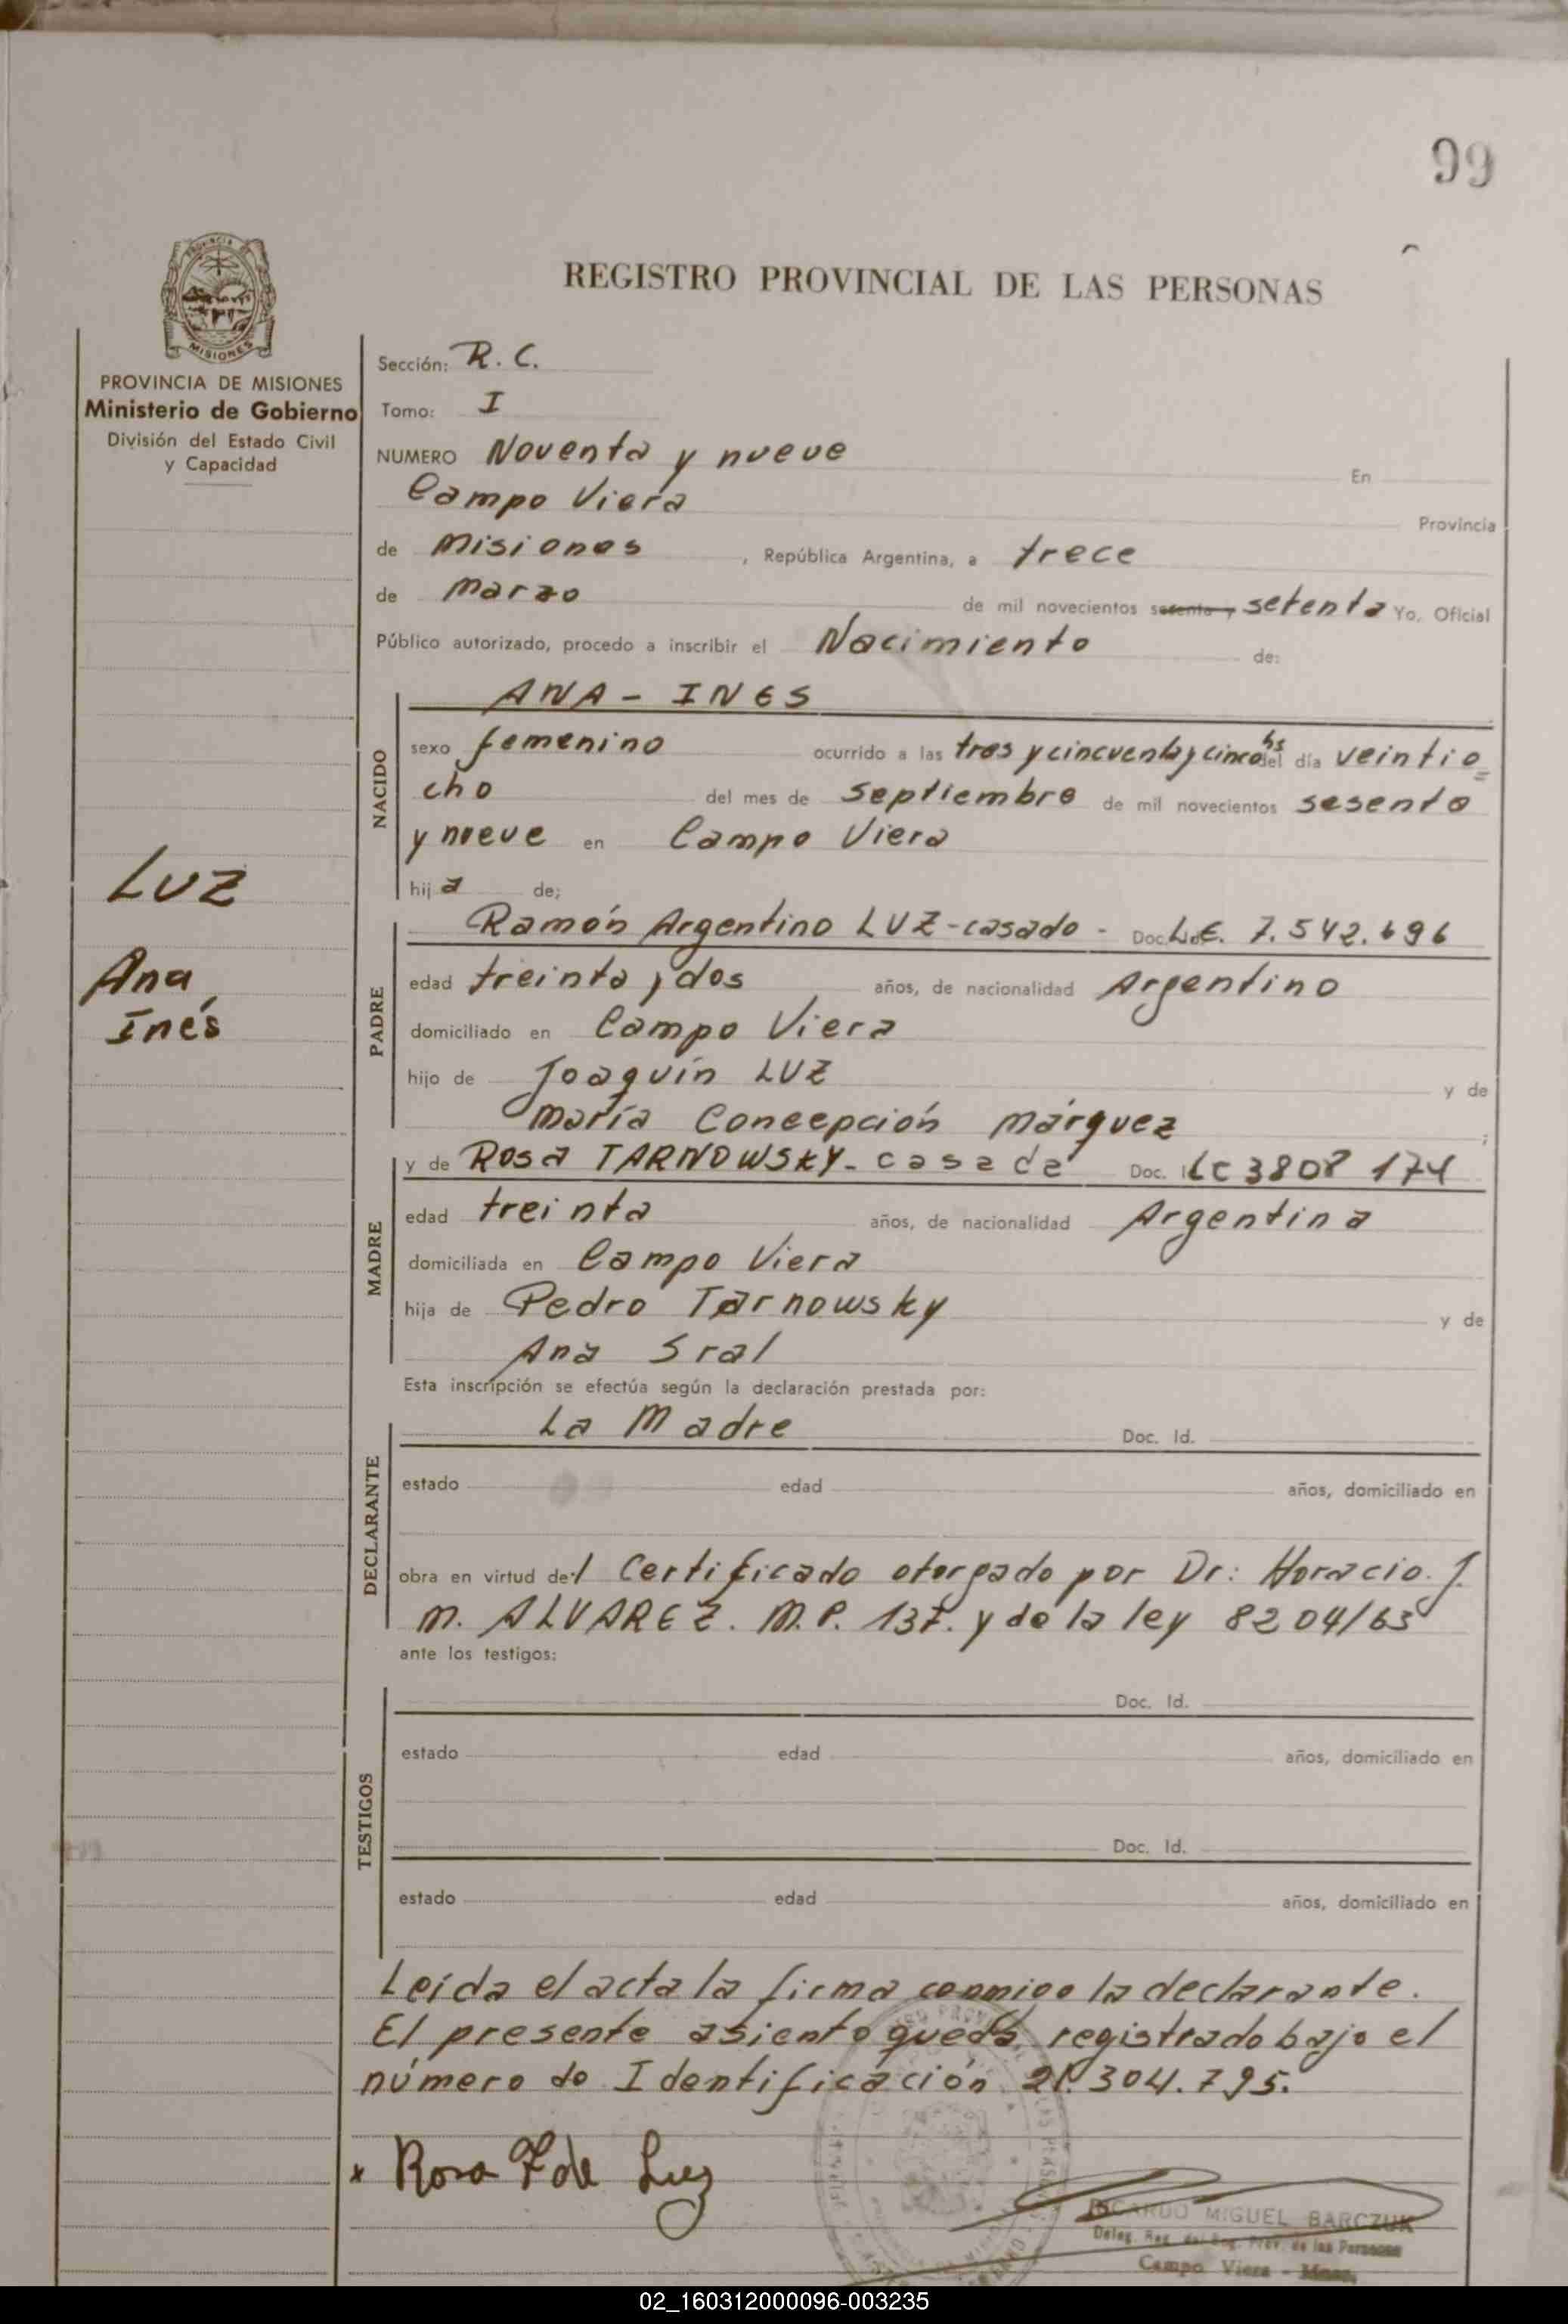 99
REGISTRO PROVINCIAL DE LAS PERSONAS
MISIONES
PROVINCIA DE MISIONES
Ministerio de Gobierno
División del Estado Civil
y Capacidad
Sección: R. C.
Tomo: I
NUMERO Noventa y nueve En
Campo Viera Provincia
de Misiones, República Argentina, a trece
de Marzo de mil novecientos sesenta y setenta Yo, Oficial
Público autorizado, procedo a inscribir el Nacimiento de:
NACIDO
ANA - INES
sexo femenino ocurrido a las tres y cincuenta y cinco hs del día veintio=
cho del mes de septiembre de mil novecientos sesenta
y nueve en Campo Viera
hija de;
LUZ
Ana
Inés
PADRE
Ramón Argentino LUZ - casado - Doc. L.E. 7.542.696
edad treinta y dos años, de nacionalidad Argentino
domiciliado en Campo Viera
hijo de Joaquín LUZ y de
María Concepción Márquez ;
MADRE
y de Rosa TARNOWSKY - casada Doc. LC 3808 174
edad treinta años, de nacionalidad Argentina
domiciliada en Campo Viera
hija de Pedro Tarnowsky y de
Ana Sral
Esta inscripción se efectúa según la declaración prestada por:
DECLARANTE
La Madre Doc. Id.
estado edad años, domiciliado en
obra en virtud del Certificado otorgado por Dr: Horacio. J.
M. ALVAREZ. M.P. 137. y de la ley 8204/63
ante los testigos:
TESTIGOS
Doc. Id.
estado edad años, domiciliado en
Doc. Id.
estado edad años, domiciliado en
Leída el acta la firma conmigo la declarante.
El presente asiento queda registrado bajo el
número de Identificación 21.304.795.
x Rosa T de Luz
RICARDO MIGUEL BARCZUK
Deleg. Reg. del Reg. Prov. de las Personas
Campo Viera - Mnes.
02_160312000096-003235